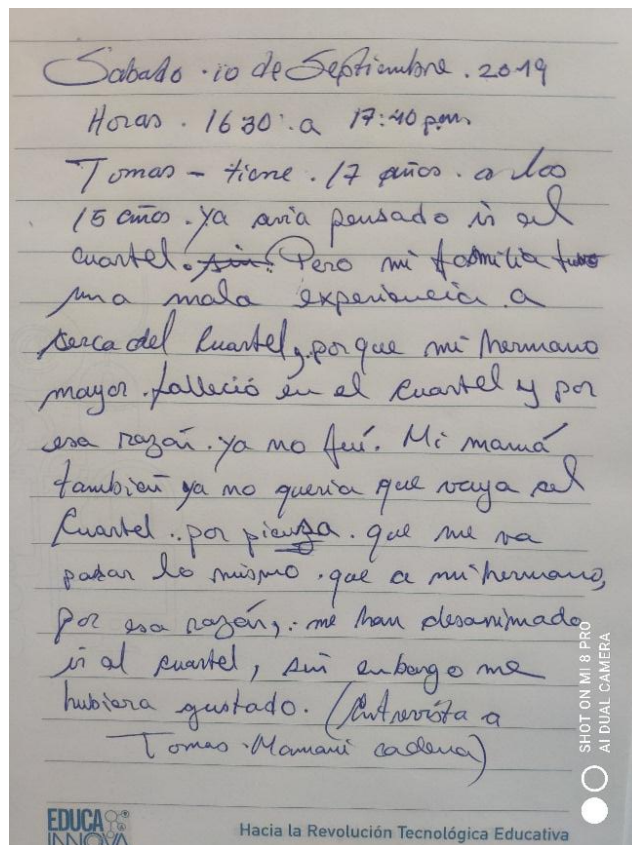 Sabado . 10 de Septiembre . 2019
Horas . 16 30 . a 17:40 pm
Tomas - tiene . 17 años . a los
15 años . ya avia pensado ir al
cuartel. sin. Pero mi familia tubo
una mala experiencia. a
cerca del cuartel, porque mi hermano
mayor . falleció en el cuartel y por
esa razón . ya no fuí. Mi mamá
también ya no queria que vaya al
cuartel .. por piensa . que me va
pasar lo mismo . que a mi hermano,
por esa razón, . me han desanimado
ir al cuartel, sin enbargo me
hubiera gustado. (Entrevista a
Tomas . Mamani cadena)
SHOT ON MI 8 PRO
AI DUAL CAMERA
EDUCA
INNOVA
Hacia la Revolución Tecnológica Educativa